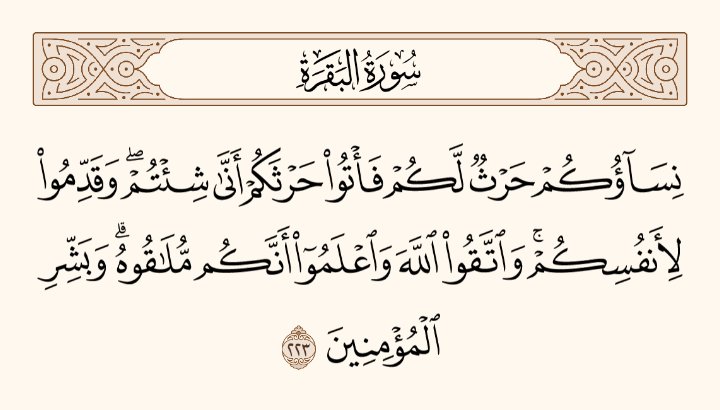 سُورَةُ البَقَرَةِ
نِسَآؤُكُمْ حَرْثٌ لَّكُمْ فَأْتُوا۟ حَرْثَكُمْ أَنَّىٰ شِئْتُمْ ۖ وَقَدِّمُوا۟
لِأَنفُسِكُمْ ۚ وَٱتَّقُوا۟ ٱللَّهَ وَٱعْلَمُوٓا۟ أَنَّكُم مُّلَـٰقُوهُ ۗ وَبَشِّرِ
ٱلْمُؤْمِنِينَ ٢٢٣